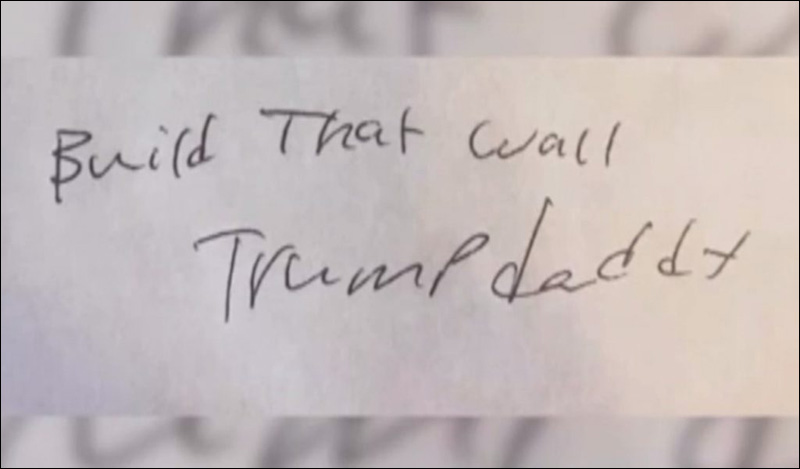 Build That Wall
Trump daddy